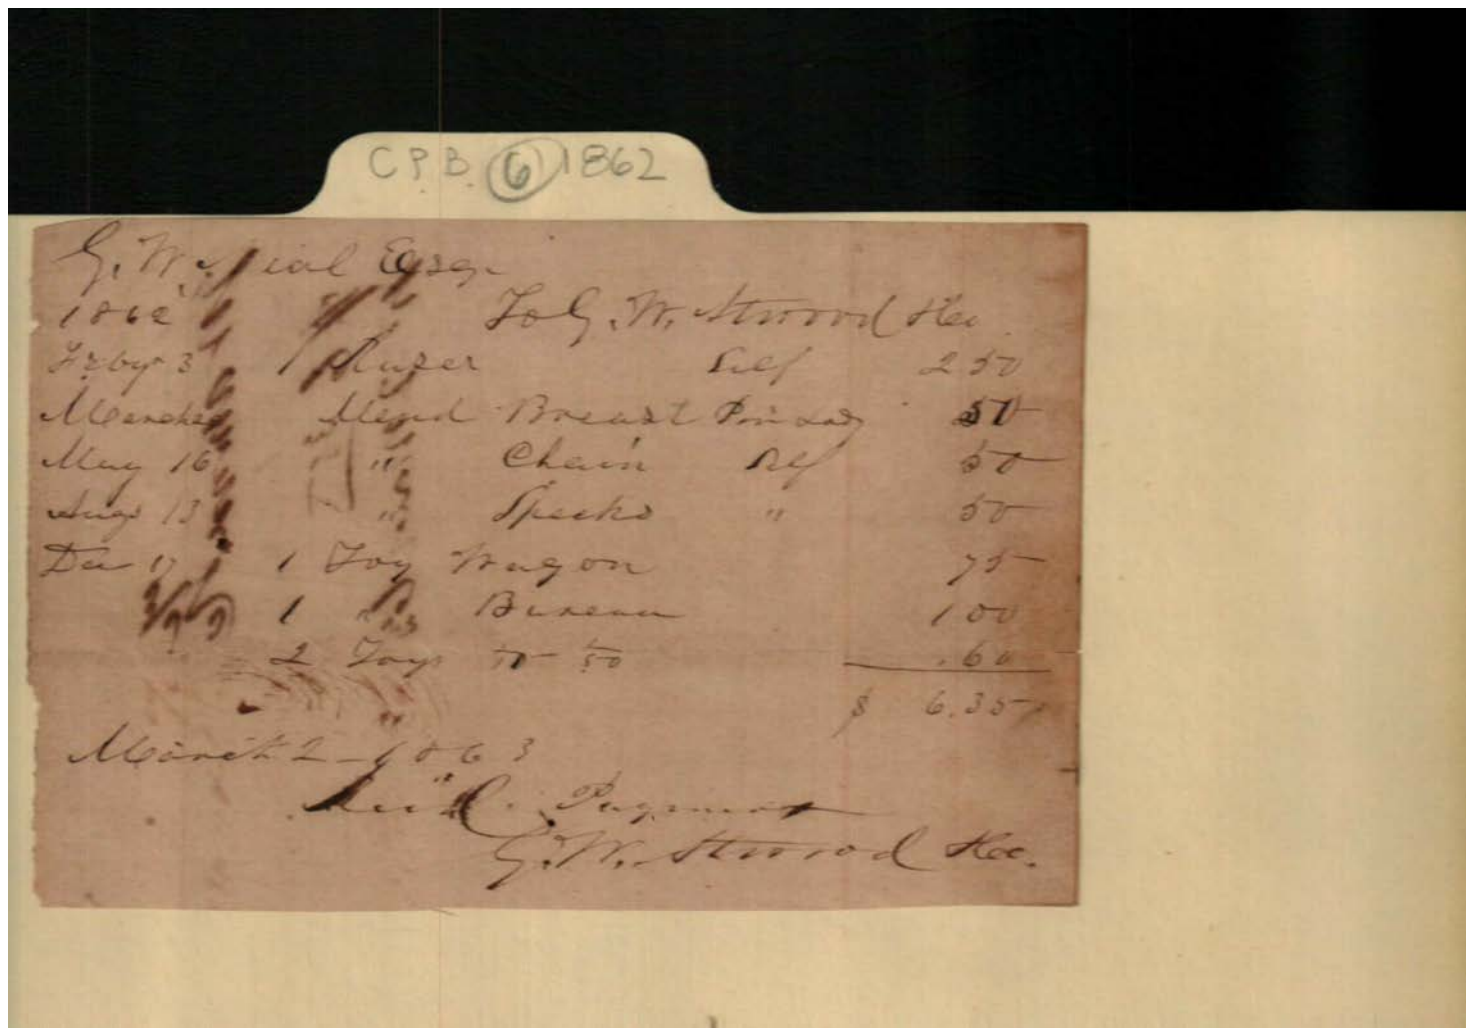 C.P.B. 6 1862
G. W. Esqr
1862 To G. W. Atwood
Feby 3 1 Razer Self 2 50
March Mend Breast Pin Lady 50
May 16 " Chain Self 50
Aug 13 " Specks " 50
Dec 17 1 Toy Wagon 75
1 " Bureau 1 00
2 Toys 50 .60
$ 6.35
March 2 - 1863
Payment
G. W. Atwood